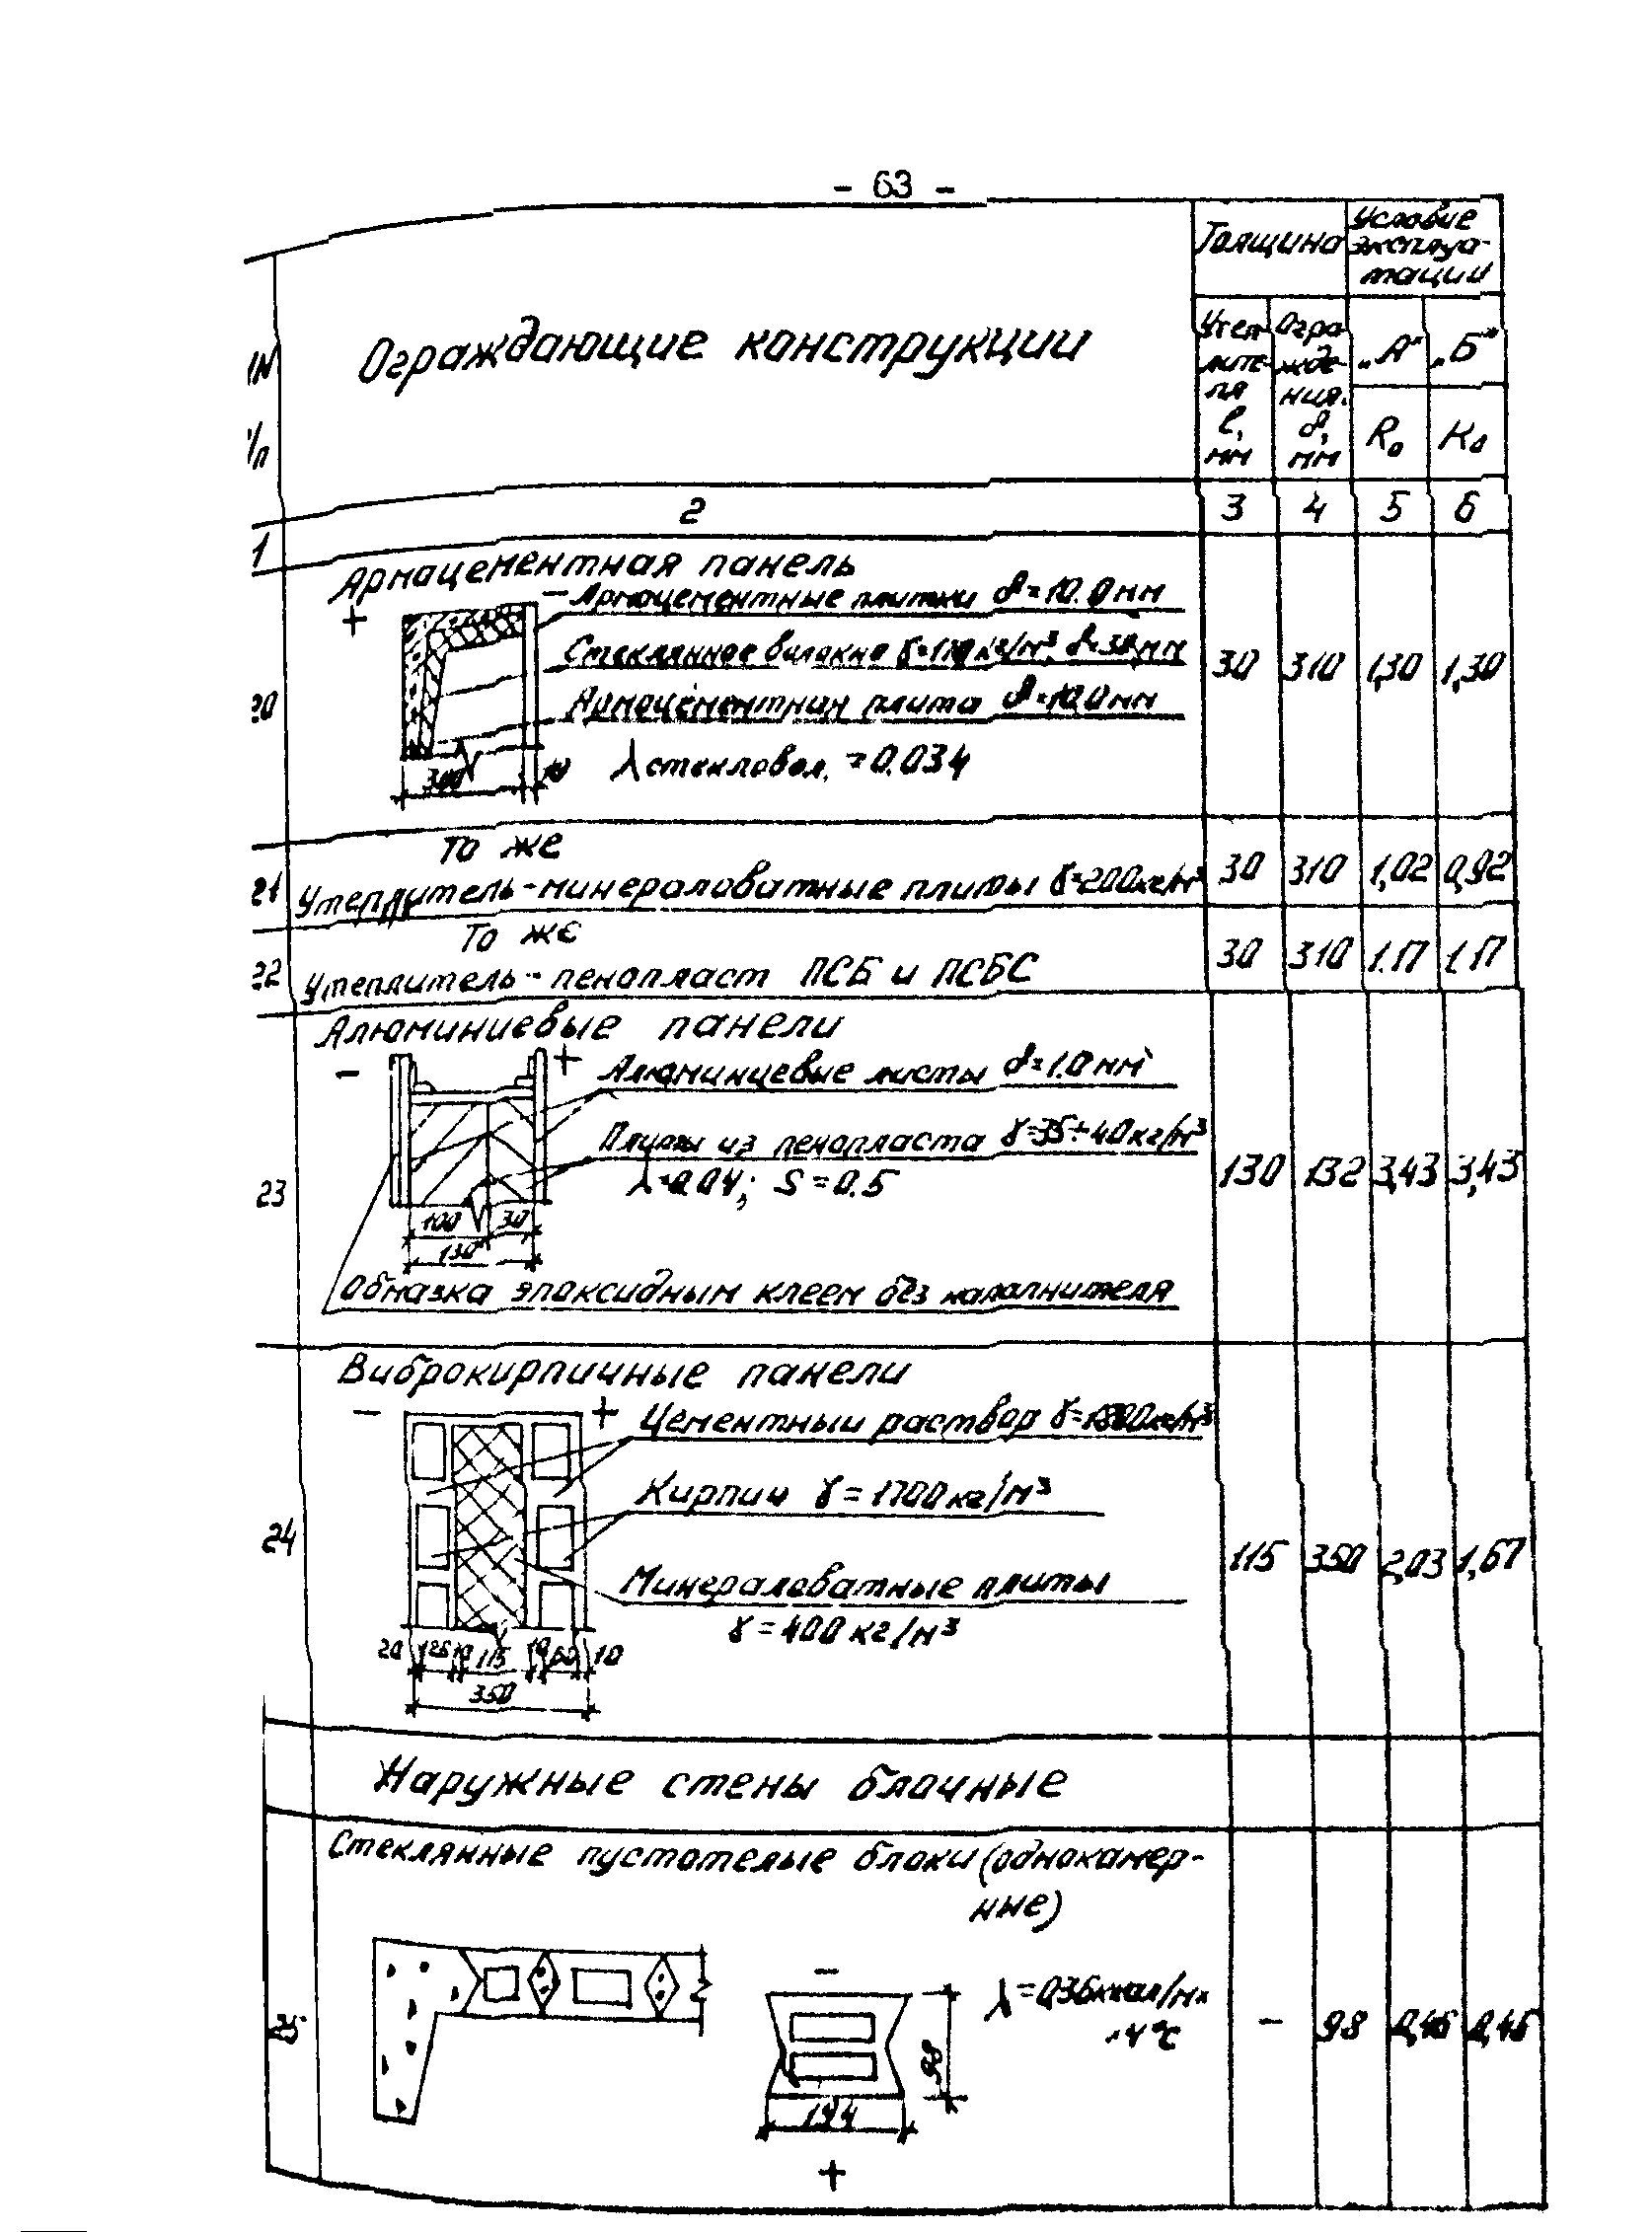 - 63 -
№ п/п
Ограждающие конструкции
Толщина
Условие эксплуа-
тации
Утеп-
лите-
ля
ℓ,
мм
Огра-
жде-
ния.
δ,
мм
„А"
„Б"
R₀
R₀
1 2 3 4 5 6
20
Армацементная панель
+ -
Армоцементные плитки δ=10.0мм
Стеклянное волокно δ=30мм
Армоцементная плита δ=10,0мм
λ стекловол. =0.034
300
30 310 1,30 1,30
То же
21 Утеплитель-минераловатные плиты γ=200кг/м³ 30 310 1,02 0,92
То же
22 Утеплитель - пенопласт ПСБ и ПСБС 30 310 1.17 1.17
23
Алюминиевые панели
- +
Алюминиевые листы δ=1.0мм
Плиты из пенопласта γ=35÷40кг/м³
λ=0.04; S=0.5
100 30
130
Обмазка эпоксидным клеем без наполнителя
130 132 3,43 3,43
24
Виброкирпичные панели
- +
Цементный раствор γ=1800кг/м³
Кирпич γ=1700кг/м³
Минераловатные плиты
γ=400кг/м³
20 125 10 115 10 60 10
350
115 350 2,03 1,67
Наружные стены блочные
25
Стеклянные пустотелые блоки (однокамер-
ные)
-
λ=0,36ккал/м×
×ч°С
98
194
+
- 98 0,46 0,46